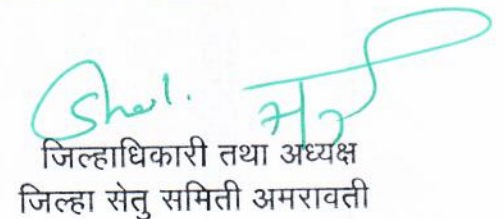 जिल्हाधिकारी तथा अध्यक्ष
जिल्हा सेतु समिती अमरावती